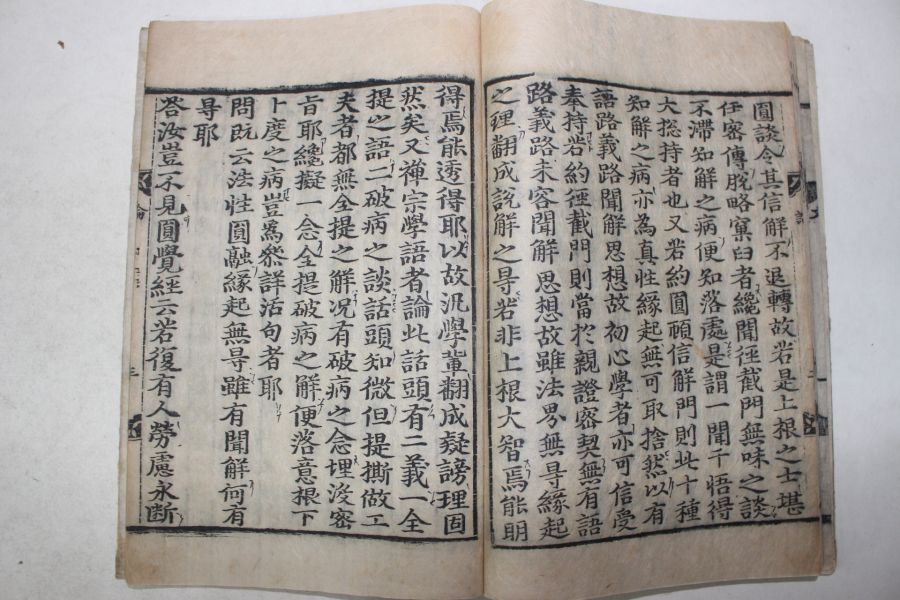 圓談令其信解不退轉故若是上根之士堪
任密傳脫略窠臼者纔聞徑截門無味之談
不滯知解之病便知落處是謂一聞千悟得
大捴持者也又若約圓頓信解門則此十種
知解之病亦為真性緣起無可取捨然以有
語路義路聞解思想故初心學者亦可信受
奉持若約徑截門則當於親證密契無有語
路義路未容聞解思想故雖法界無㝵緣起
之理翻成說解之㝵若非上根大智焉能明
得焉能透得耶以故汎學軰翻成疑謗理固
然矣又禪宗學語者論此話頭有二義一全
提之語二破病之談話頭知微但提撕做工
夫者都無全提之解况有破病之念埋没密
旨耶纔擬一念全提破病之解便落意根下
卜度之病豈為叅詳活句者耶
問既云法性圓融緣起無㝵雖有聞解何有
㝵耶
答汝豈不見圓覺經云若復有人勞慮永斷
論
三